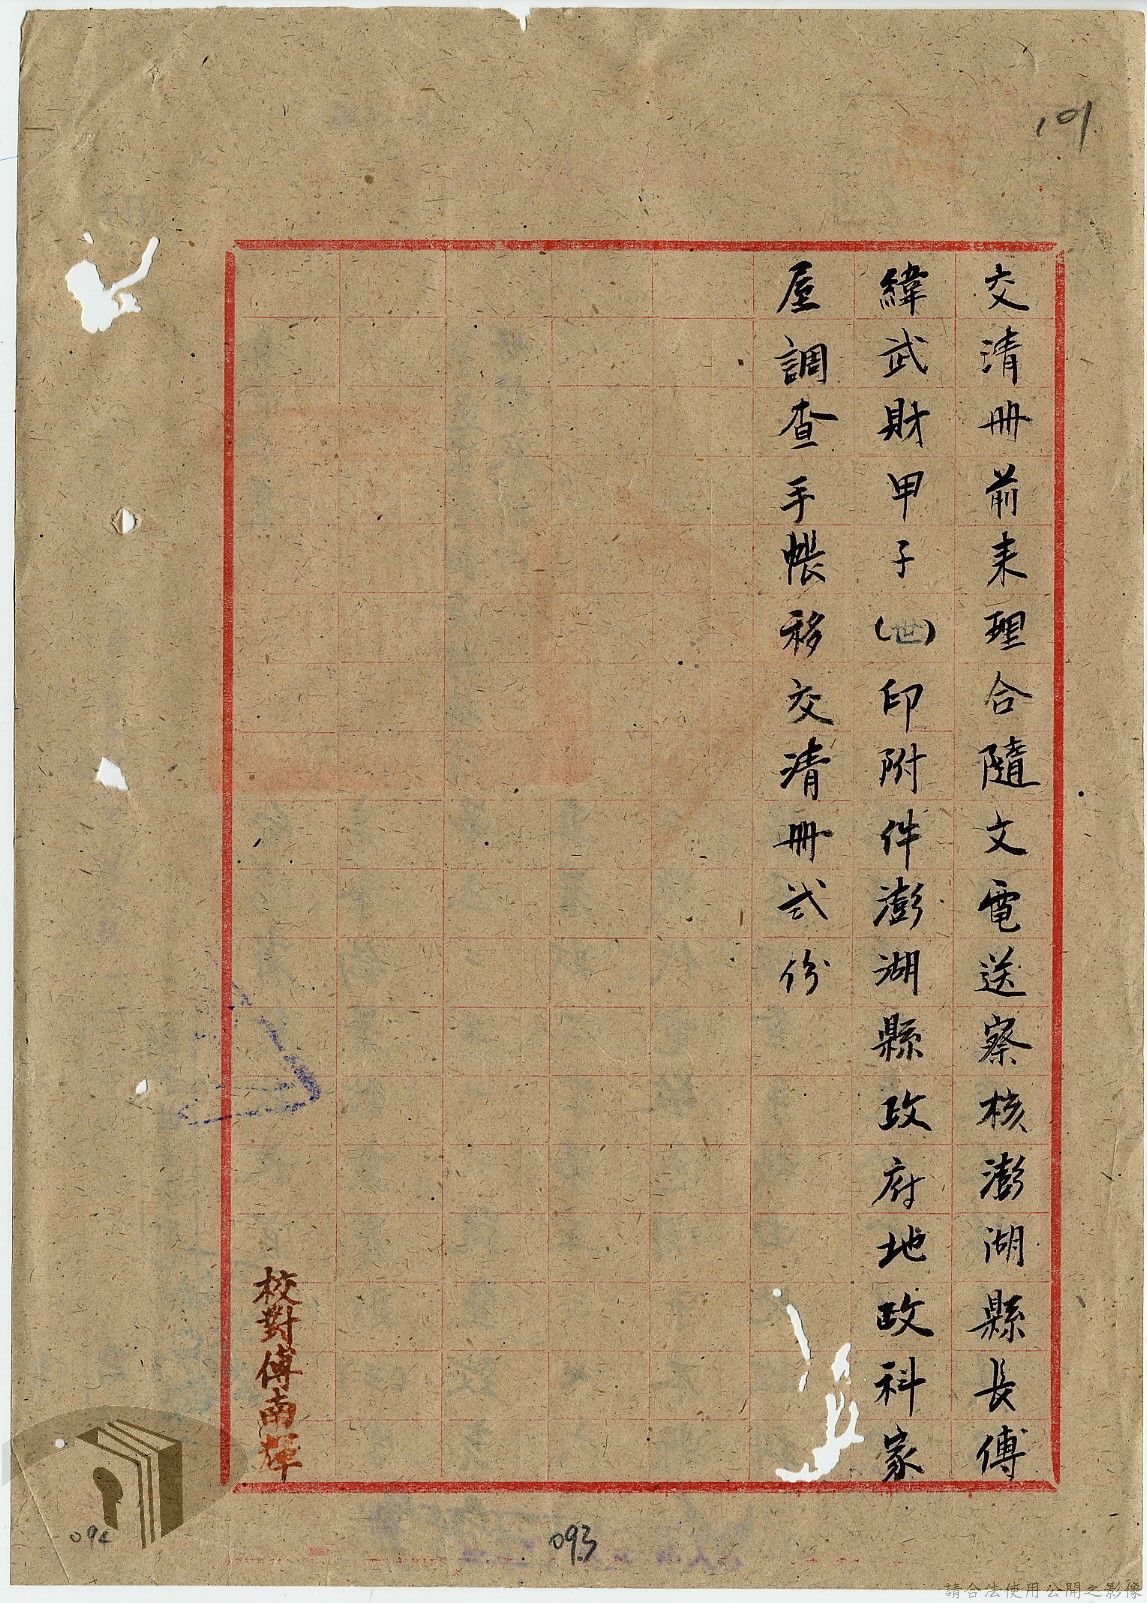 101
交清冊前來理合隨文電送察核澎湖縣長傅
緯武財甲子(世)印附件澎湖縣政府地政科家
屋調查手帳移交清冊弍份
校對傅南輝
093
請合法使用公開之影像